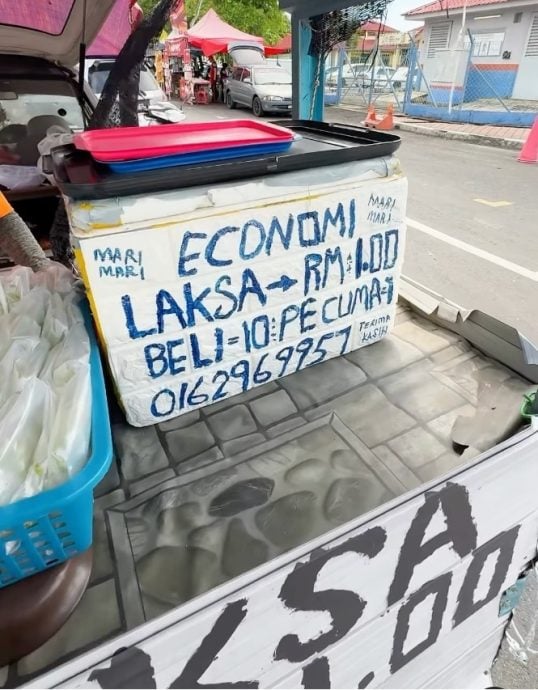 MARI MARI
ECONOMI
MARI MARI
LAKSA → RM:1.00
BELI=10:PECUMA=1
0162969957
TERIMA KASIH
KSA
1.00